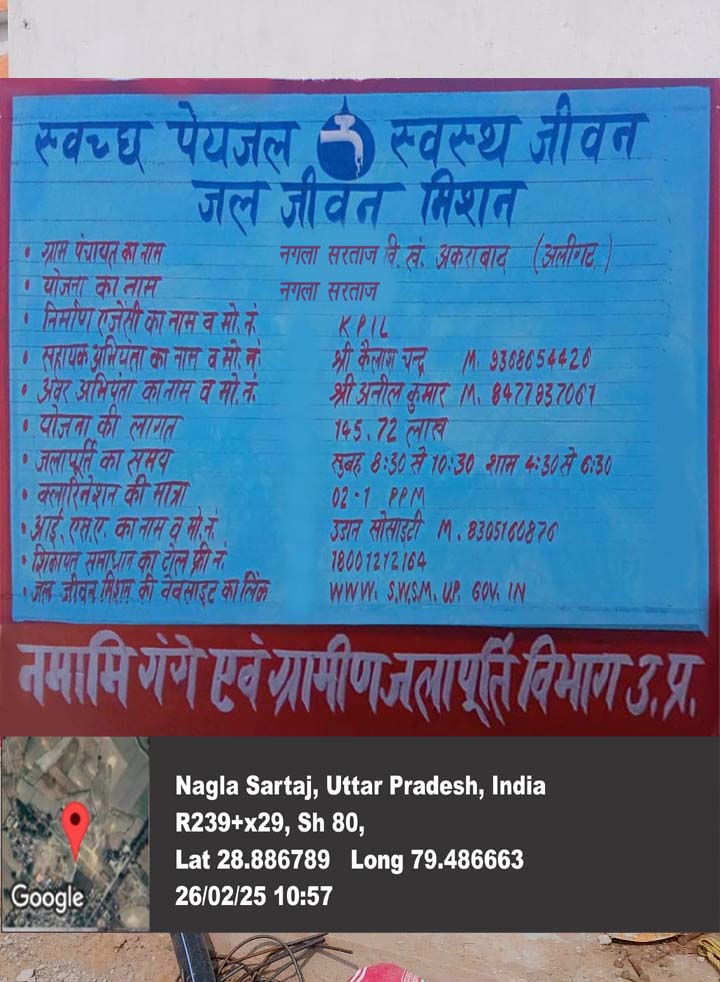 स्वच्छ पेयजल स्वस्थ जीवन
जल जीवन मिशन
• ग्राम पंचायत का नाम नगला सरताज वि. खं. अकराबाद (अलीगढ़)
• योजना का नाम नगला सरताज
• निर्माण एजेंसी का नाम व मो. नं. KPIL
• सहायक अभियंता का नाम व मो. नं. श्री कैलाश चन्द्र M. 9368654426
• अवर अभियंता का नाम व मो. नं. श्री अनील कुमार M. 8477937061
• योजना की लागत 145.72 लाख
• जलापूर्ति का समय सुबह 8:30 से 10:30 शाम 4:30 से 6:30
• क्लारिनेशन की मात्रा 02-1 PPM
• आई. एस. ए. का नाम व मो. नं. उडान सोसाइटी M. 8305160876
• शिकायत समाधान का टोल फ्री नं. 18001212164
• जल जीवन मिशन की वेबसाइट का लिंक WWW. S.W.S.M. U.P. GOV. IN
नमामि गंगे एवं ग्रामीण जलापूर्ति विभाग उ. प्र.
Nagla Sartaj, Uttar Pradesh, India
R239+x29, Sh 80,
Lat 28.886789 Long 79.486663
26/02/25 10:57
Google